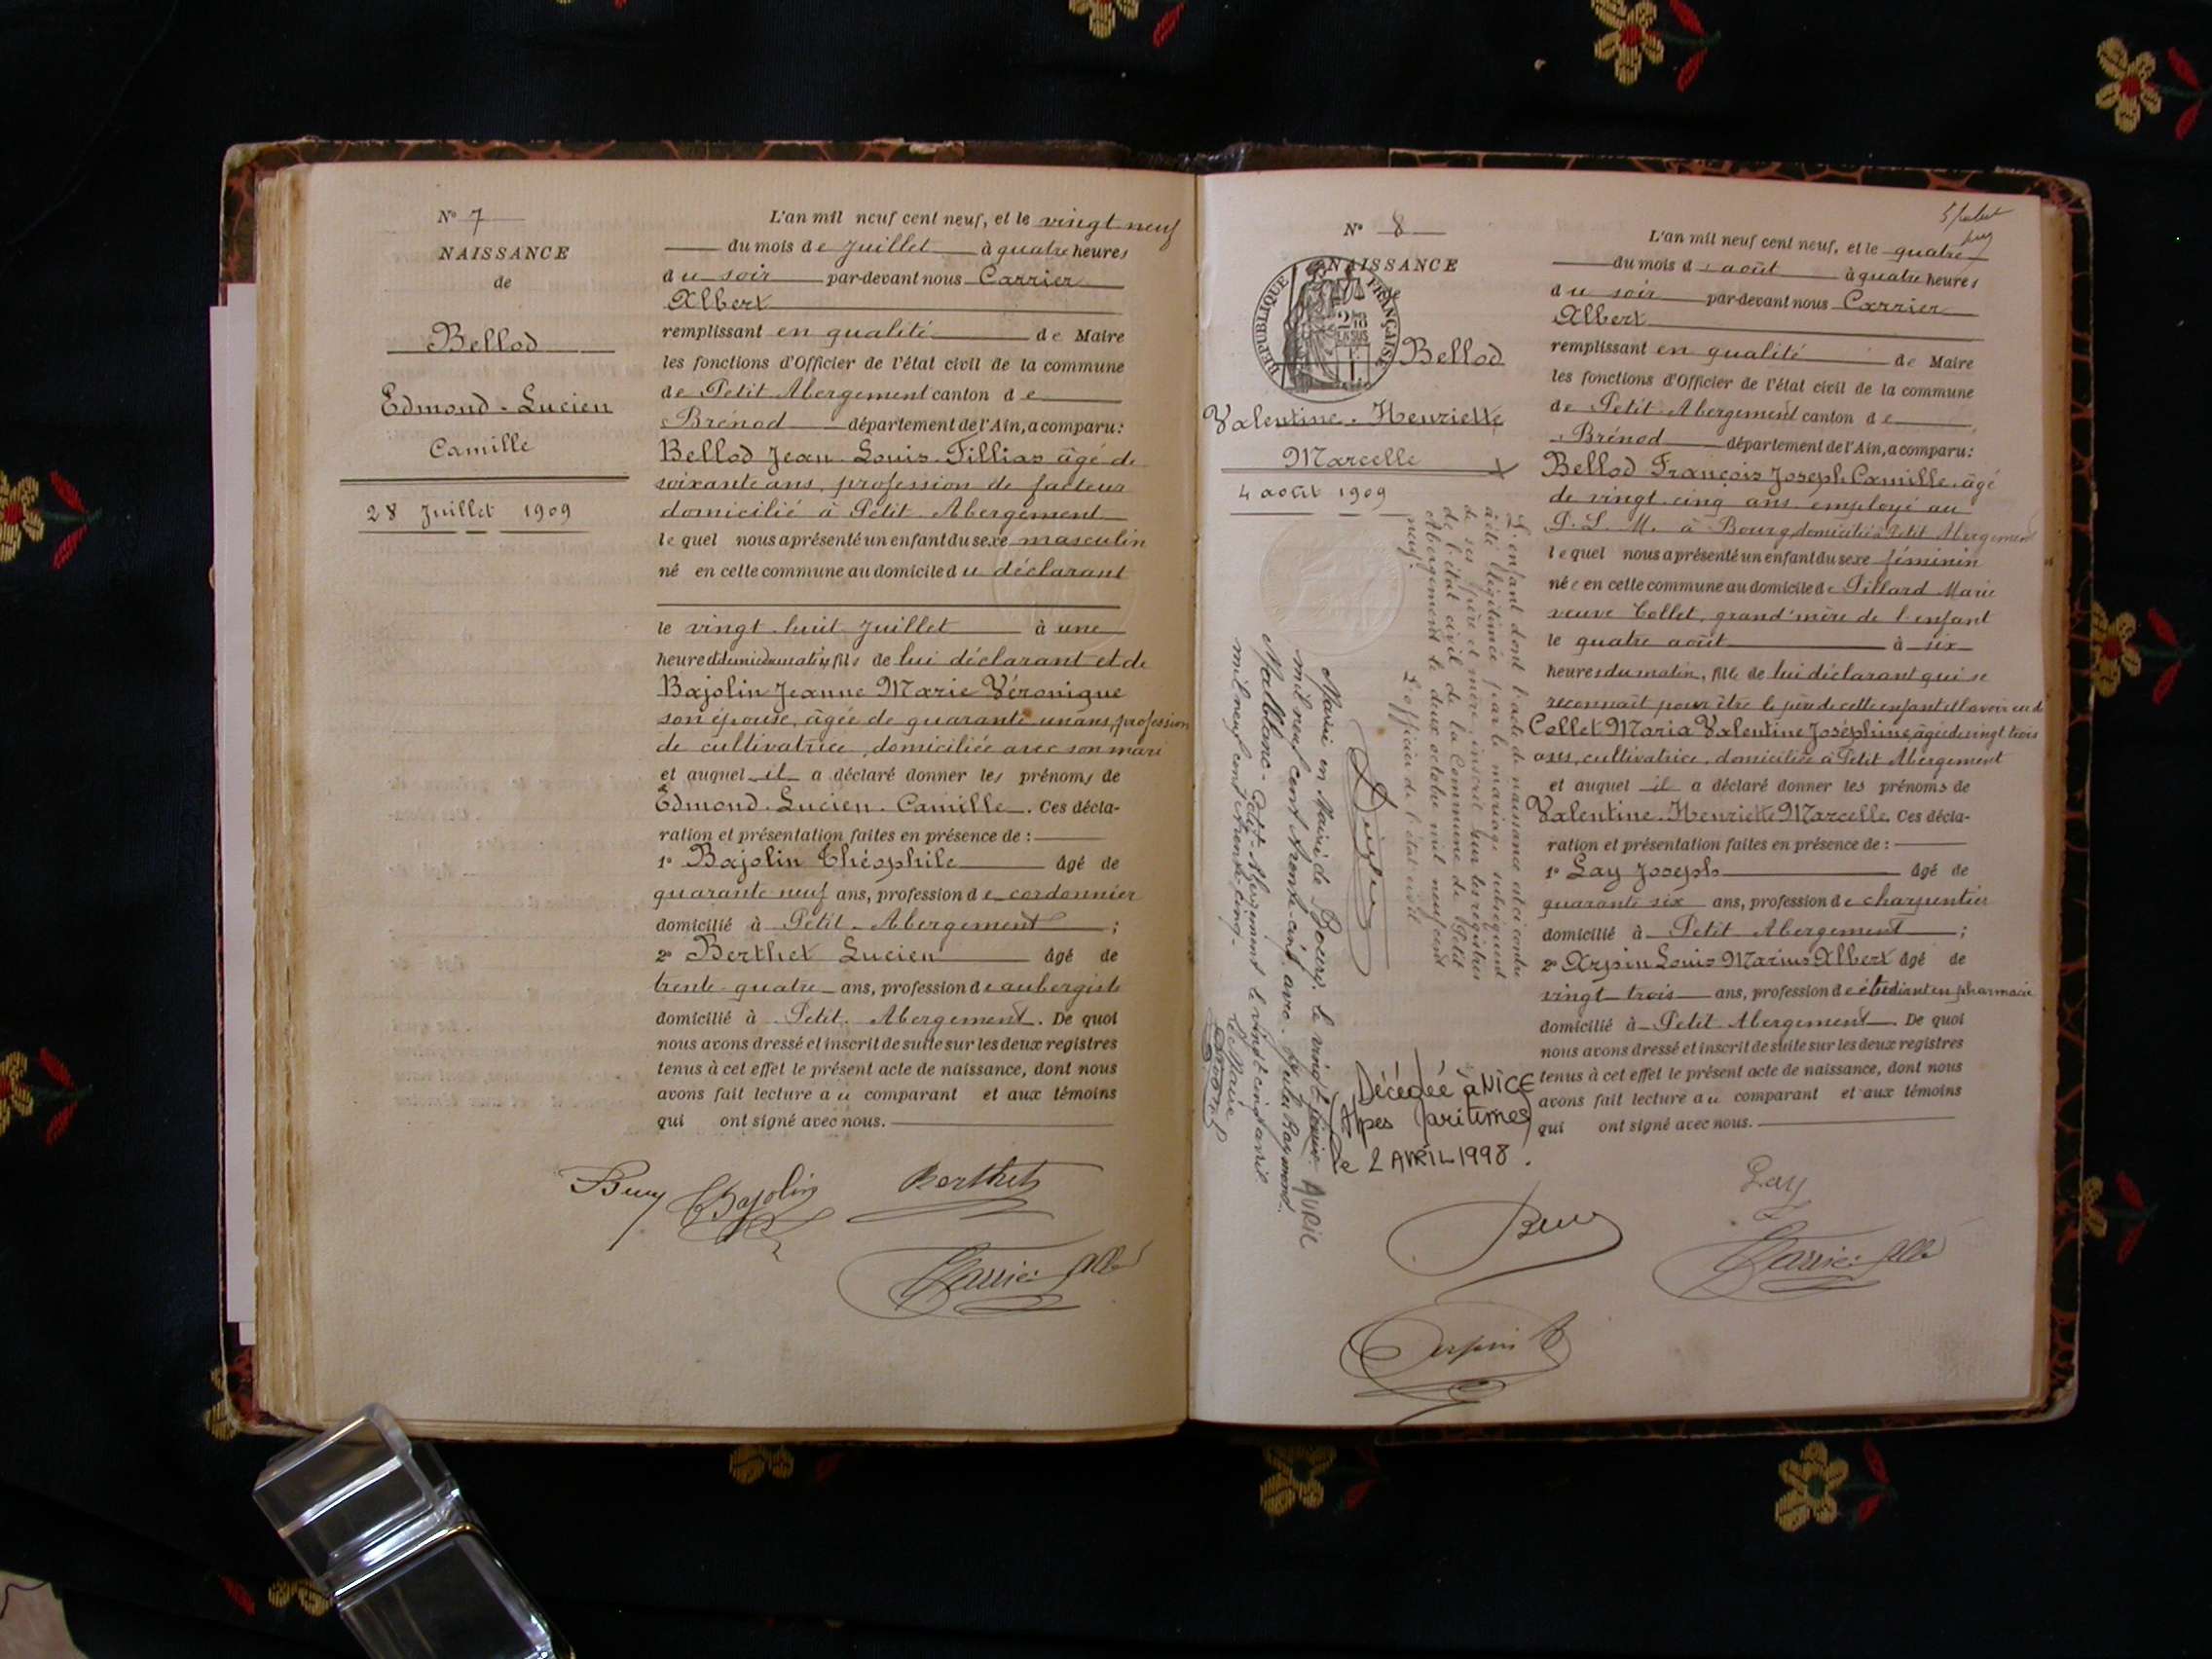 N° 7
NAISSANCE
de
Bellod
Edmond-Lucien
Camille
28 Juillet 1909
L'an mil neuf cent neuf, et le vingt neuf
du mois de Juillet à quatre heures
du soir par-devant nous Carrier
Albert
remplissant en qualité de Maire
les fonctions d'Officier de l'état civil de la commune
de Petit Abergement canton de
Brénod département de l'Ain, a comparu:
Bellod Jean Louis Fillias âgé de
soixante ans, profession de facteur
domicilié à Petit Abergement
lequel nous a présenté un enfant du sexe masculin
né en cette commune au domicile du déclarant
le vingt huit Juillet à une
heure et demie du matin, fils de lui déclarant et de
Bajolin Jeanne Marie Véronique
son épouse, âgée de quarante un ans, profession
de cultivatrice, domiciliée avec son mari
et auquel il a déclaré donner les prénoms de
Edmond. Lucien. Camille. Ces décla-
ration et présentation faites en présence de :
1° Bajolin Théophile âgé de
quarante neuf ans, profession de cordonnier
domicilié à Petit-Abergement ;
2° Berthet Lucien âgé de
trente quatre ans, profession de aubergiste
domicilié à Petit. Abergement. De quoi
nous avons dressé et inscrit de suite sur les deux registres
tenus à cet effet le présent acte de naissance, dont nous
avons fait lecture au comparant et aux témoins
qui ont signé avec nous.
Bajolin
Berthet
Carrier Albt
N° 8
NAISSANCE
de
REPUBLIQUE FRANÇAISE
Bellod
Valentine. Henriette
Marcelle
4 août 1909
L'enfant dont l'acte de naissance est ci contre
a été légitimée par le mariage subséquent
de ses père et mère, inscrit sur les registres
de l'état civil de la Commune de Petit
Abergement le deux octobre mil neuf cent
neuf.
L'officier de l'état civil
Mariée en Mairie de Bourg, le vingt AVRIL
mil neuf cent trente-cinq avec
Petit-Abergement le vingt cinq avril
mil neuf cent trente-cinq.
Le Maire
Décédée à NICE
(Alpes Maritimes)
le 2 AVRIL 1998.
L'an mil neuf cent neuf, et le quatre
du mois d'août à quatre heures
du soir par-devant nous Carrier
Albert
remplissant en qualité de Maire
les fonctions d'Officier de l'état civil de la commune
de Petit Abergement canton de
Brénod département de l'Ain, a comparu:
Bellod François Joseph Camille, âgé
de vingt cinq ans employé au
P. L. M. à Bourg, domicilié à Petit Abergement
lequel nous a présenté un enfant du sexe féminin
née en cette commune au domicile de Pillard Marie
veuve Collet, grand'mère de l'enfant
le quatre août à six
heures du matin, fille de lui déclarant qui se
reconnaît pour être le père de cette enfant et l'avoir eu de
Collet Maria Valentine Joséphine, âgée de vingt trois
ans, cultivatrice, domiciliée à Petit Abergement
et auquel il a déclaré donner les prénoms de
Valentine. Henriette Marcelle. Ces décla-
ration et présentation faites en présence de :
1° Lay Joseph âgé de
quarante six ans, profession de charpentier
domicilié à Petit Abergement ;
2° Arpin Louis Marius Albert âgé de
vingt trois ans, profession de étudiant en pharmacie
domicilié à Petit Abergement De quoi
nous avons dressé et inscrit de suite sur les deux registres
tenus à cet effet le présent acte de naissance, dont nous
avons fait lecture au comparant et aux témoins
qui ont signé avec nous.
Lay
Carrier Albt
Arpin